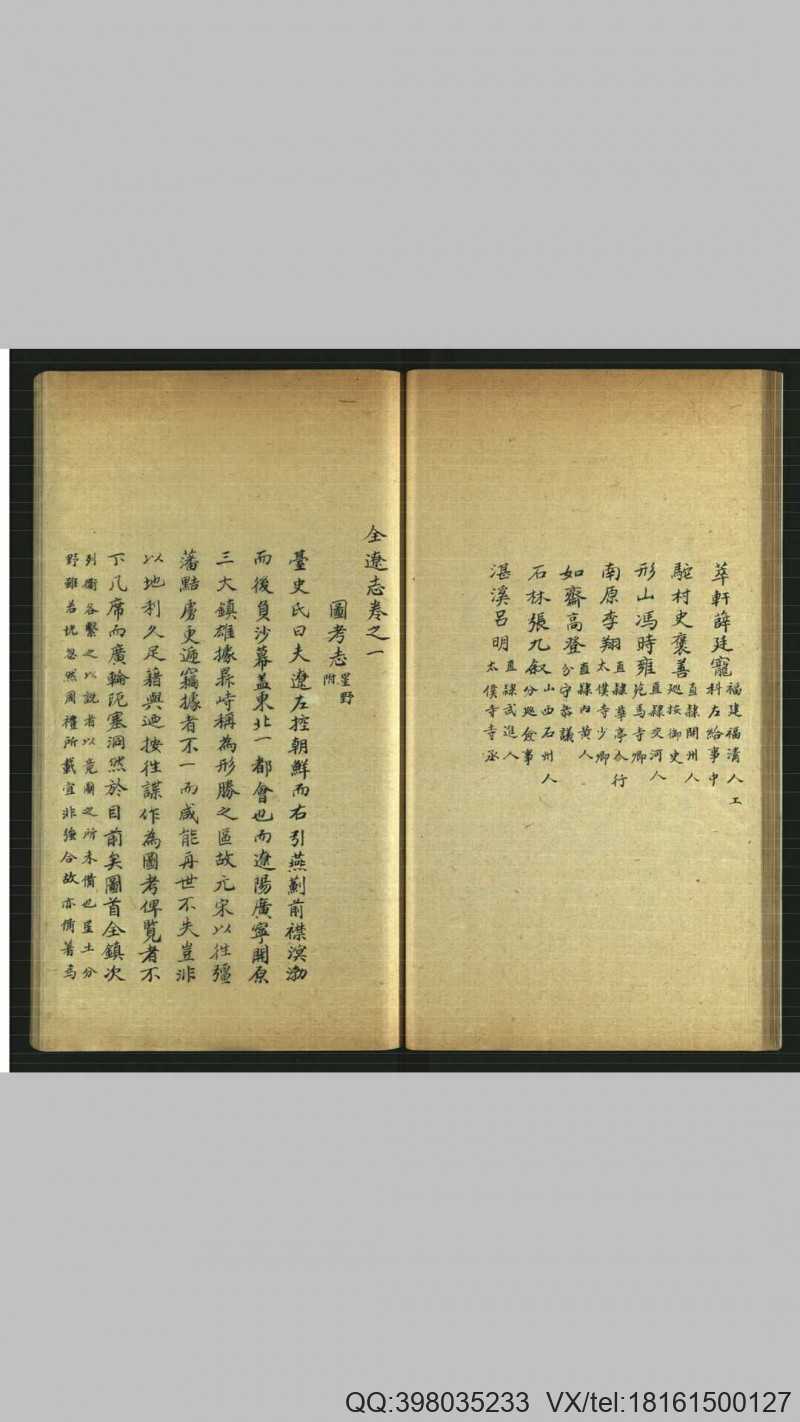 萃軒薛廷寵福建福清人工
科左給事中
駝村史褒善直隸開州人
廵按御史
形山馮時雍直隸交河人
苑馬寺卿
南原李翔直隸華亭人行
太僕寺少卿
如齋高登直隸內黃人
分守叅議
石林張九叙山西石州人
分廵僉事
湛溪呂明直隸武進人
太僕寺寺丞
全遼志卷之一
圖考志星野
附
臺史氏曰夫遼左控朝鮮而右引燕薊前襟溟渤
而後負沙幕盖東北一都會也而遼陽廣寧開原
三大鎮雄據鼎峙稱為形勝之區故元宋以徃彊
藩黠虜更遞竊據者不一而咸能再世不失豈非
以地利久足藉與廼按徃諜作為圖考俾覧者不
下几席而廣輪阨塞洞然於目前矣圖首全鎮次
列衛各繫之以說者以竟圖之所未備也星土分
野雖若恍忽然周禮所載宜非強合故亦備著焉
QQ:398035233 VX/tel:18161500127